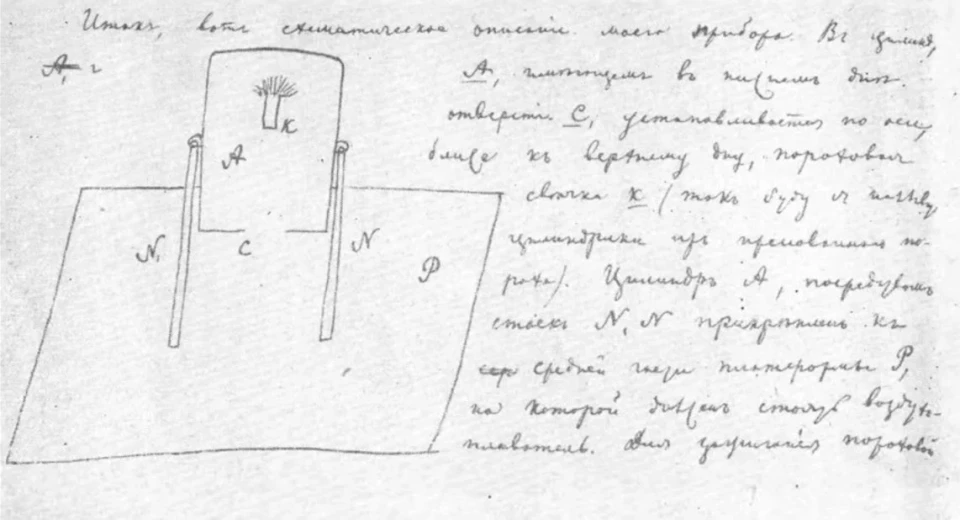 Итакъ, вотъ схематическое описаніе моего прибора. Въ цилинд,
A, имѣющемъ въ нижнемъ днѣ
отверстіе C, устанавливается по оси,
ближе къ верхнему дну, пороховая
свѣчка K (такъ буду я назыв.
цилиндрики изъ прессованнаго по-
роха). Цилиндръ A, посредствомъ
стоекъ N, N прикрѣпленъ къ
средней части платформы P,
на которой долженъ стоять воздухо-
плаватель. Для зажиганія пороховой
K
A
N,
C
N
P